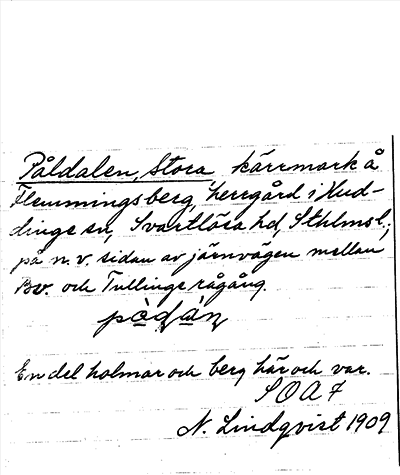 Påldalen, Stora, kärrmark å
Flemmingsberg, herrgård i Hud-
dinge sn, Svartlösa hd, Sthlms l.;
på n. v. sidan av järnvägen mellan
Bv. och Tullinge rågång.
En del holmar och berg här och var.
SOA 7
N. Lindqvist 1909